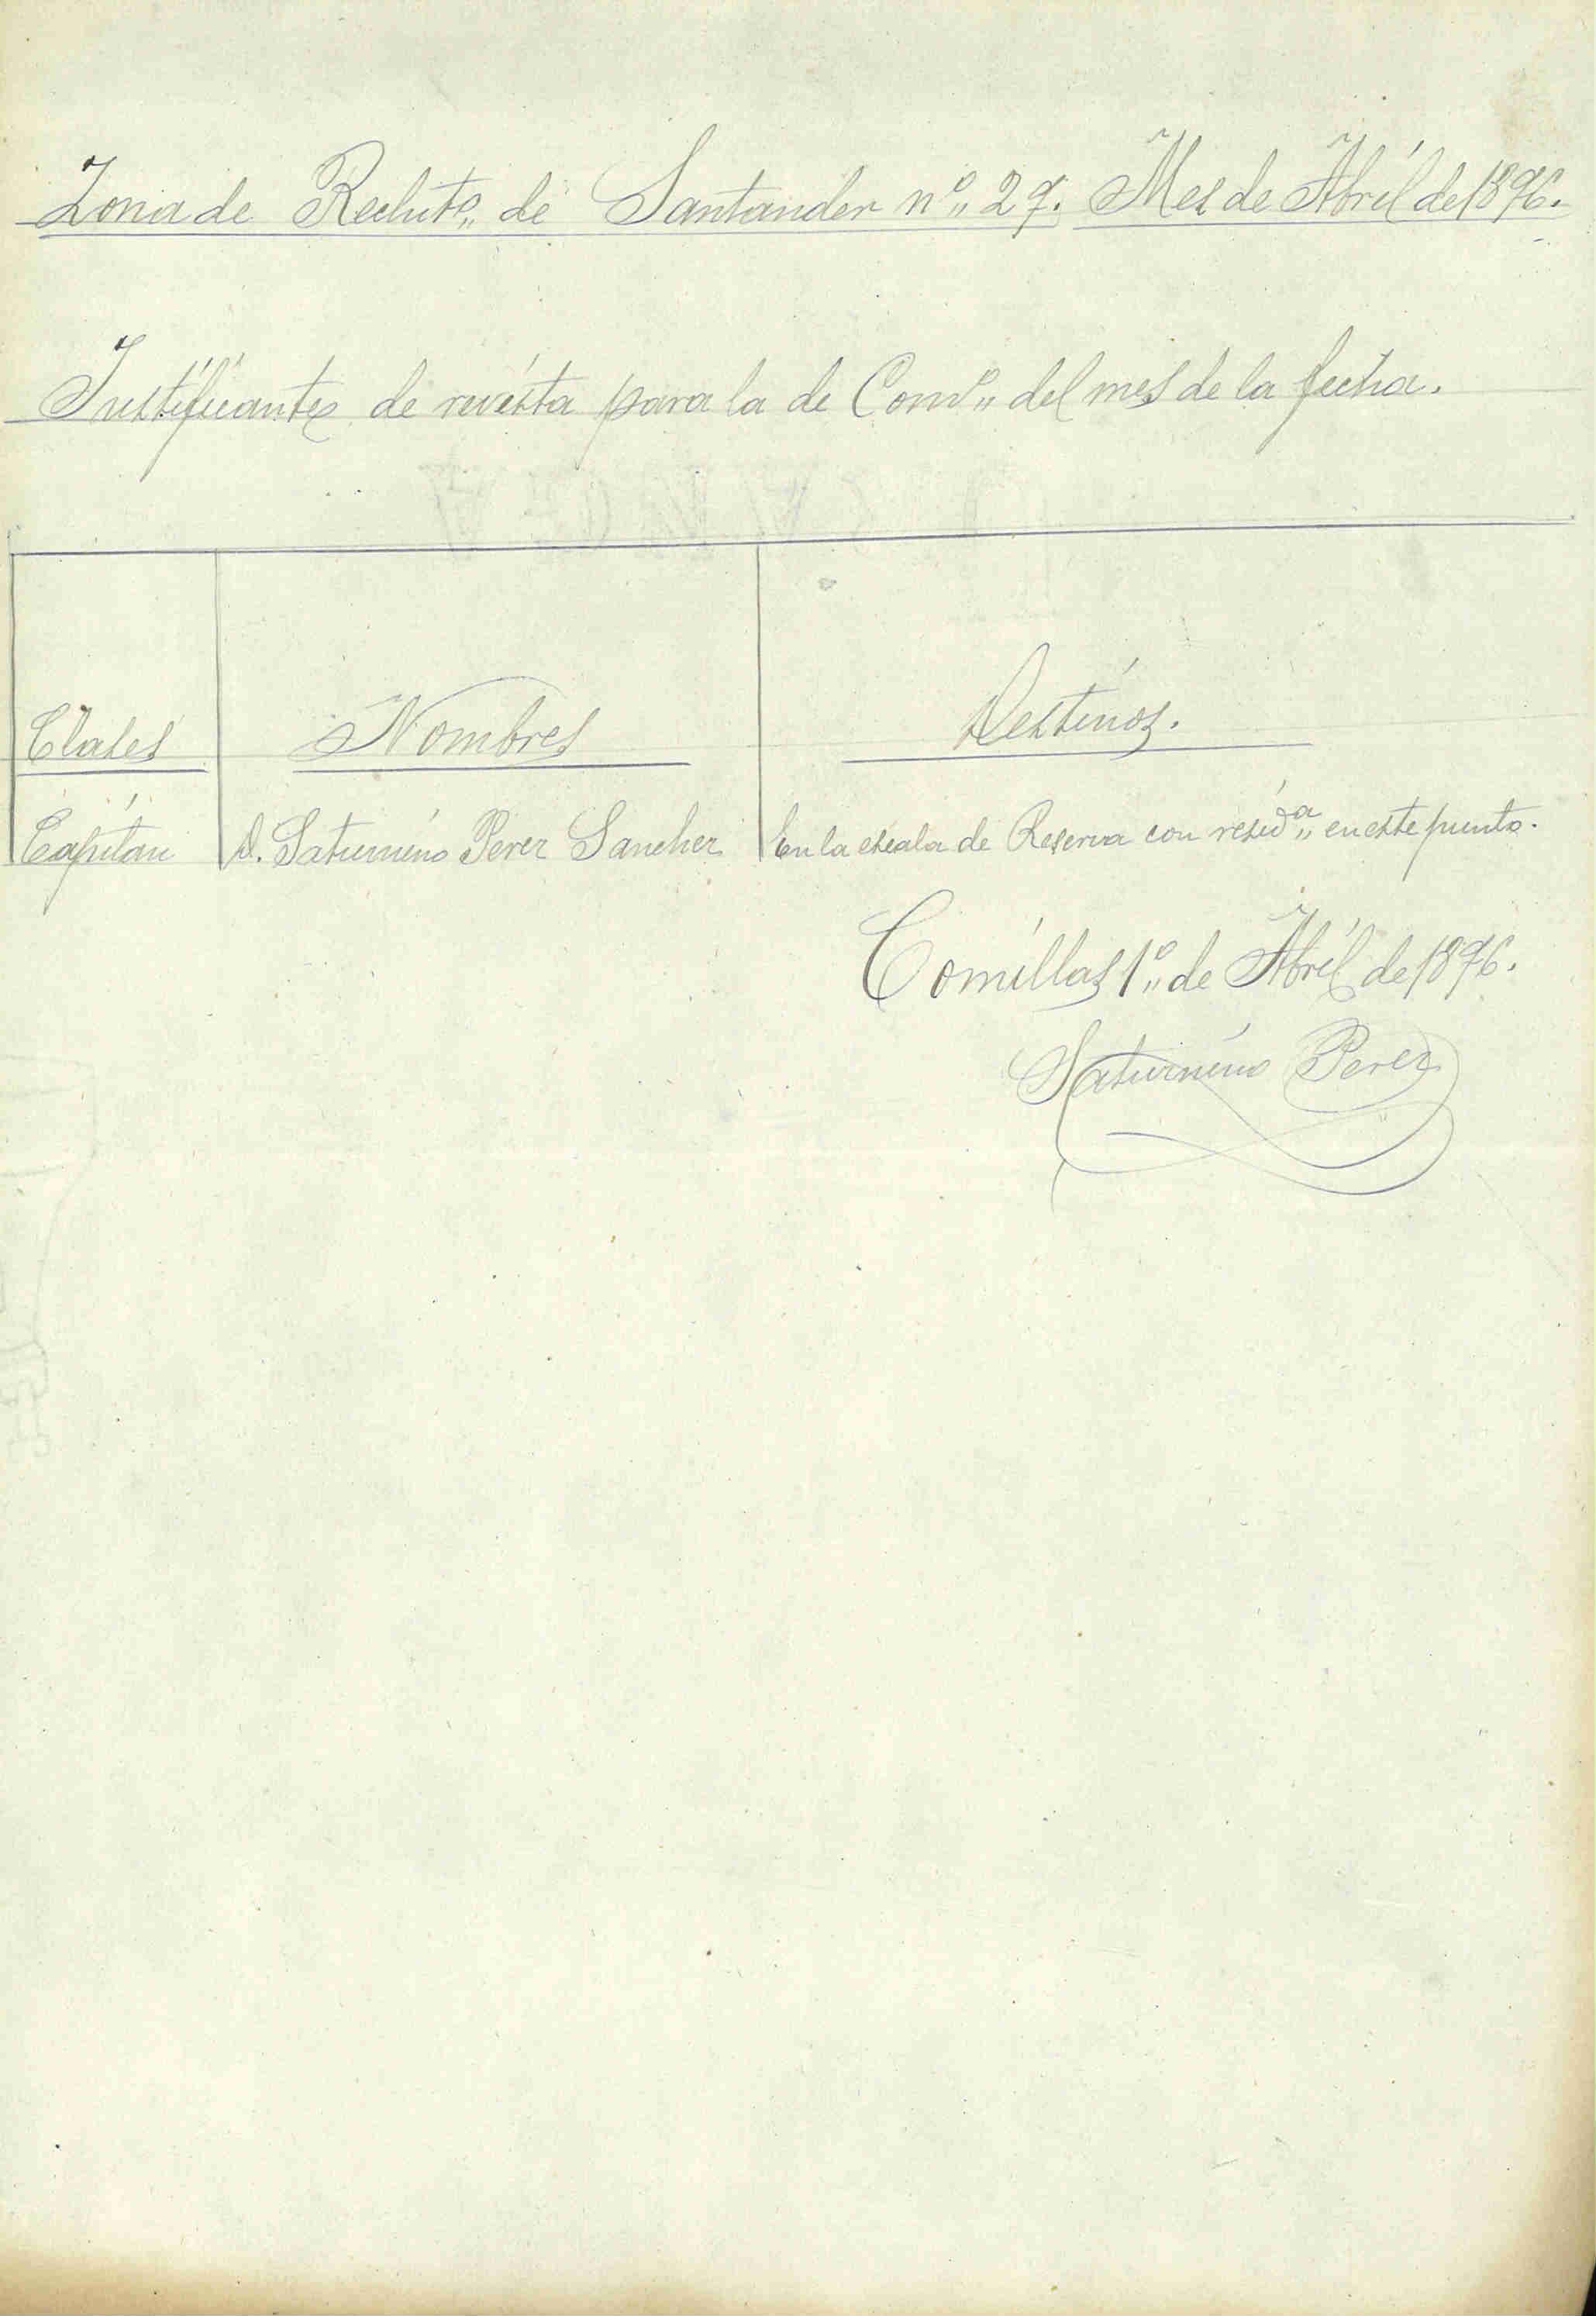 Zona de Reclutº de Santander nº 29. Mes de Abril de 1896.
Justificante de revista para la de Comº del mes de la fecha.
Clases Nombres Destinos.
Capitan D. Saturnino Perez Sanchez En la escala de Reserva con residª en este punto.
Comillas 1º de Abril de 1896.
Saturnino Perez